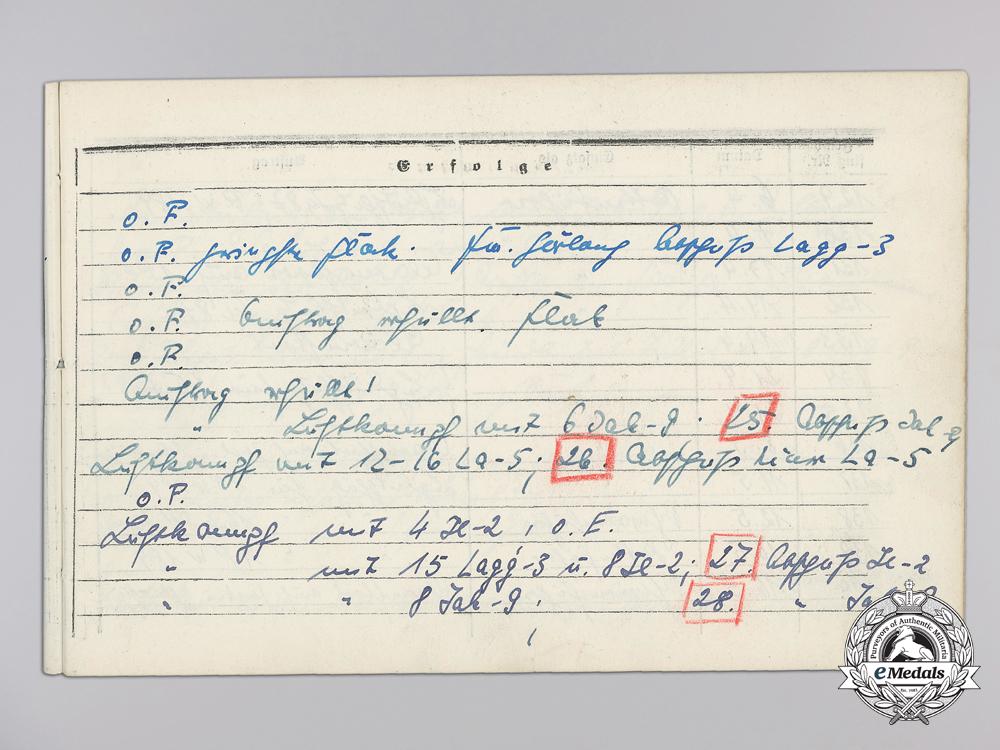 Erfolge
o. F.
o. F. geringste Flak. Abschuß Lagg-3
o. F.
o. F. Auftrag erfüllt. Flak
o. F.
Auftrag erfüllt!
" Luftkampf mit 6 Jak-9. 25. Abschuß Jak-9
Luftkampf mit 12-16 La-5; 26. Abschuß einer La-5
o. F.
Luftkampf mit 4 Il-2, o. E.
" mit 15 Lagg-3 u. 8 Il-2; 27. Abschuß Il-2
" " 8 Jak-9; 28. "
Purveyors of Authentic Militaria
eMedals